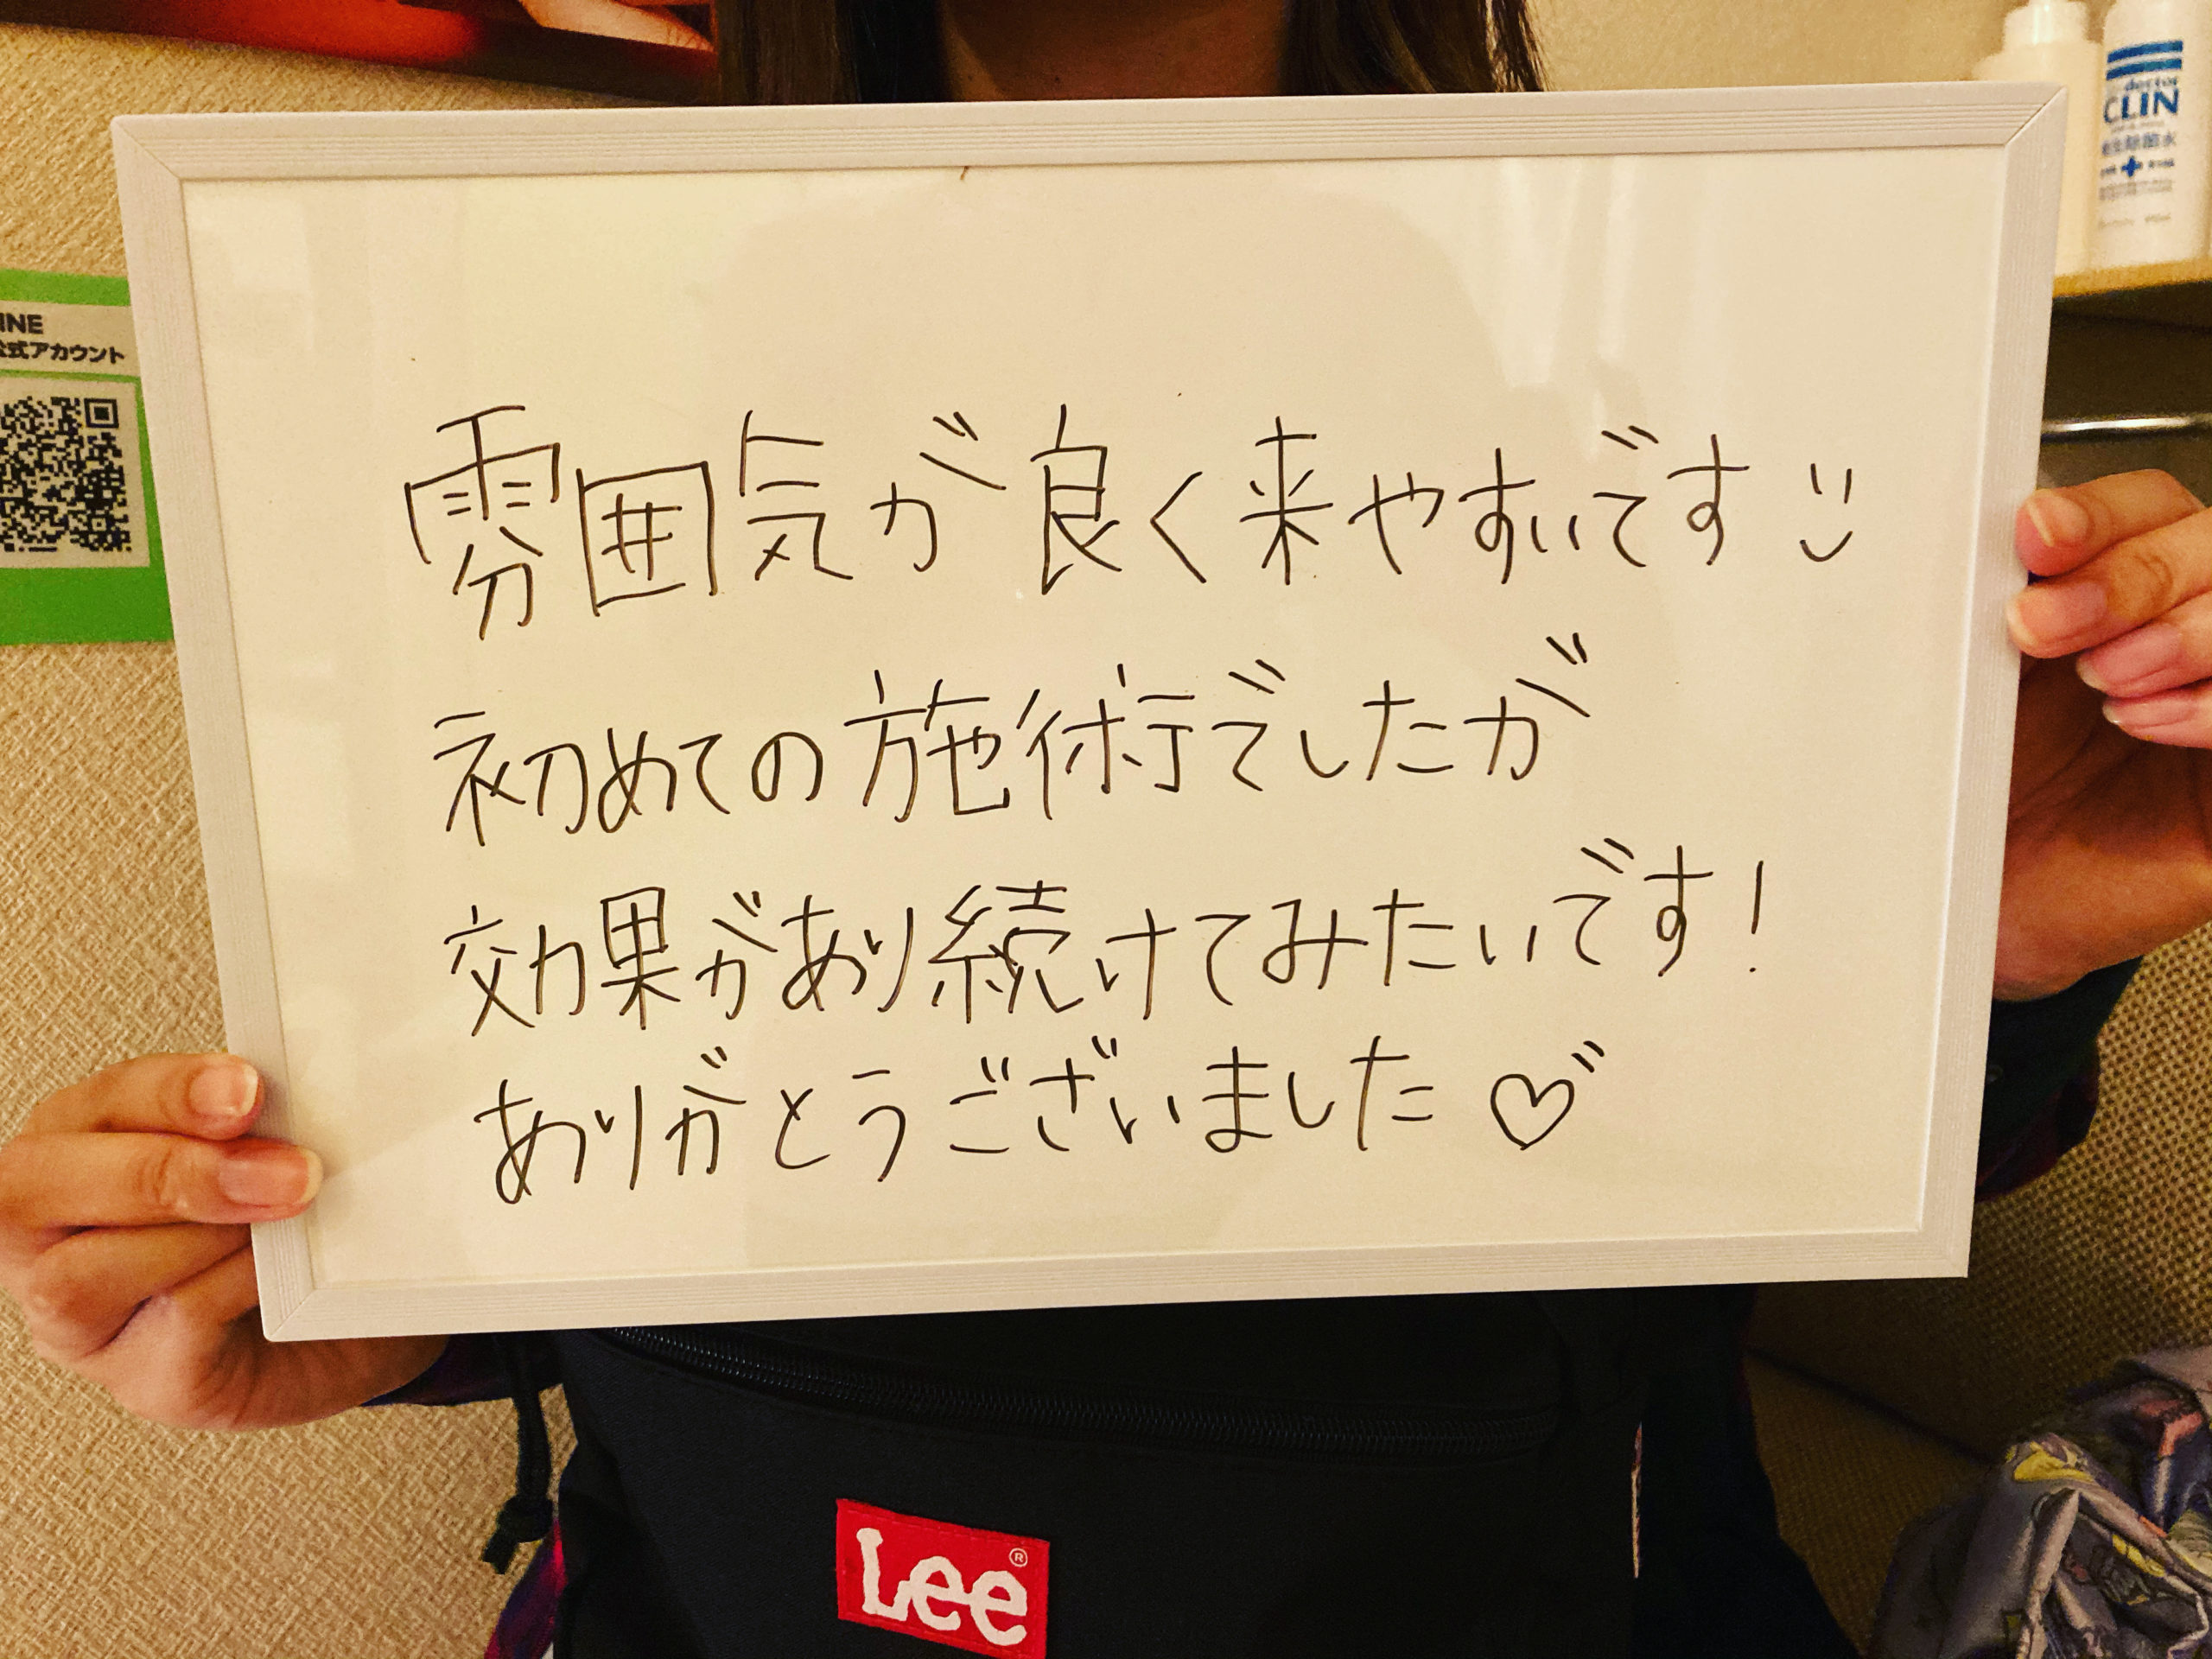 雰囲気が良く来やすいです
初めての施術でしたが
効果があり続けてみたいです!
ありがとうございました♡
INE
公式アカウント
doctor
CLIN
除菌水
Lee®